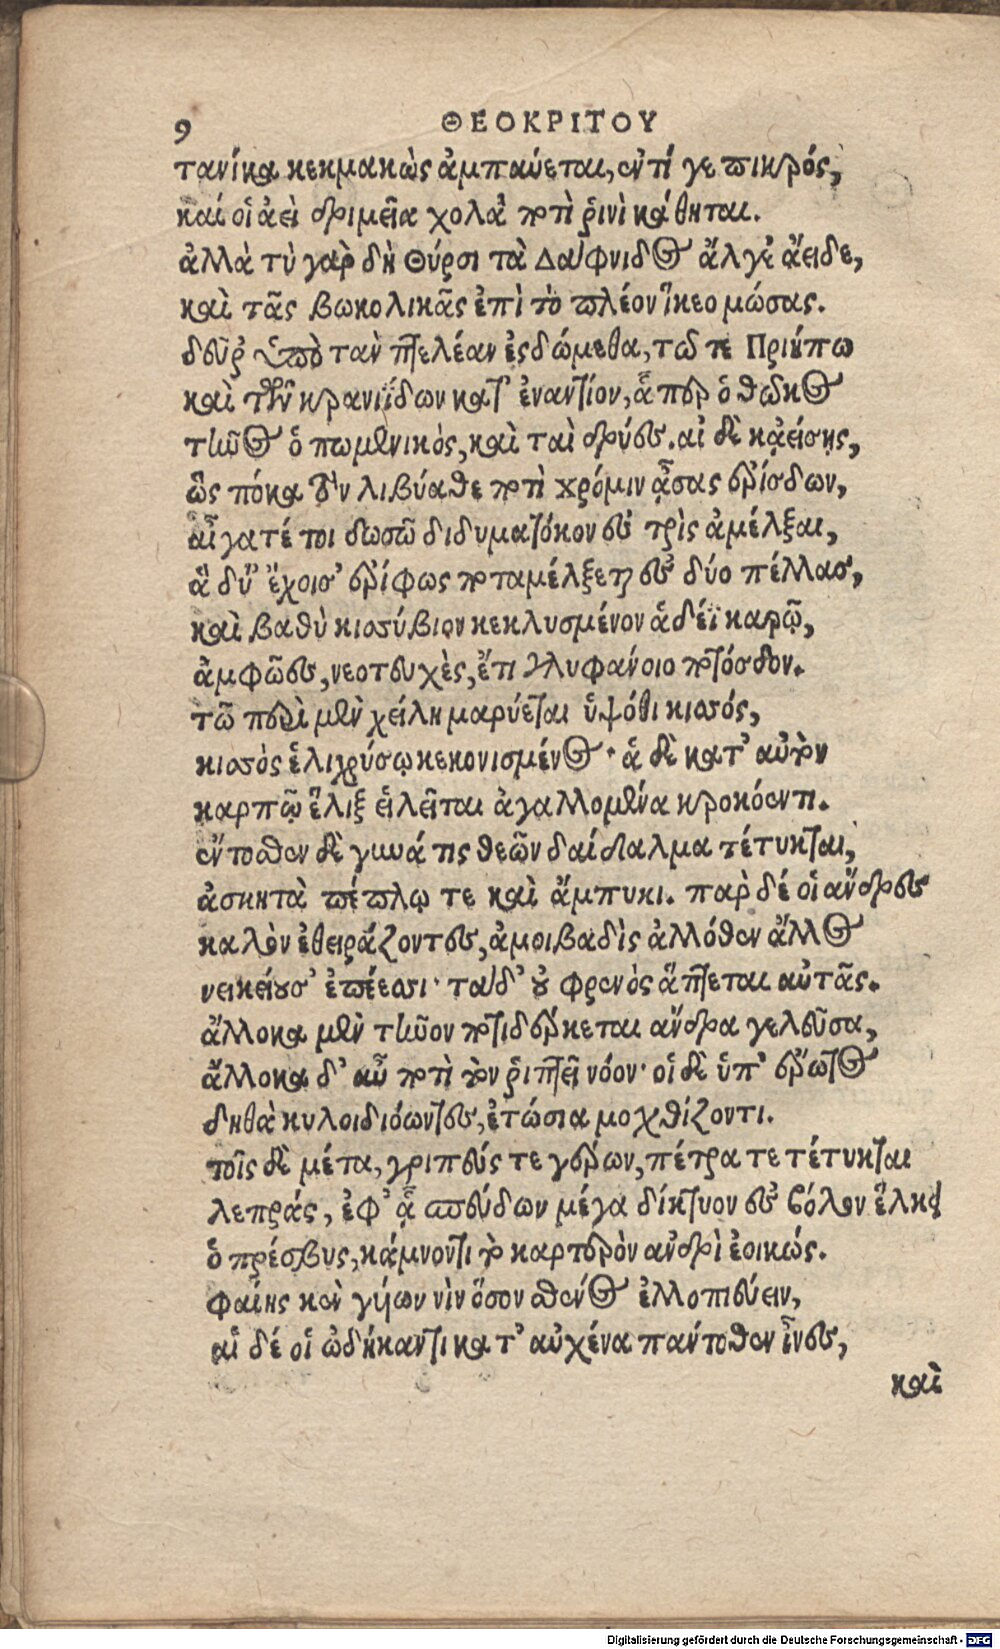 9 ΘΕΟΚΡΙΤΟΥ
τανίκα κεκμακὼς ἀμπαύεται, ἐντί γε πικρός,
καί οἱ ἀεὶ δριμεῖα χολὰ ποτὶ ῥινὶ κάθηται.
ἀλλὰ τὺ γὰρ δὴ Θύρσι τὰ Δάφνιδος ἄλγε' ἄειδε,
καὶ τᾶς βωκολικᾶς ἐπὶ τὸ πλέον ἵκεο μώσας.
δεῦρ' ὑπὸ τὰν πτελέαν ἑσδώμεθα, τῶ τε Πριήπω
καὶ τῶν κρανιΐδων κατ' ἐναντίον, ᾇπερ ὁ θῶκος
τῆνος ὁ πωμενικὸς, καὶ ταὶ δρύες. αἰ δὲ κᾀείσης,
ὥς ποκα τὸν λιβύαθε ποτὶ χρόμιν ᾆσας ἐρίσδων,
αἶγα τέ τοι δωσῶ διδυματόκον ἐς τρὶς ἀμέλξαι,
ἃ δύ' ἔχοισ' ἐρίφως ποταμέλξεται ἐς δύο πέλλας,
καὶ βαθὺ κισσύβιον κεκλυσμένον ἁδέϊ καρῷ,
ἀμφῶες, νεοτευχὲς, ἔτι γλυφάνοιο ποτόσδον.
τῶ περὶ μὲν χείλη μαρύεται ὑψόθι κισσός,
κισσὸς ἑλιχρύσῳ κεκονισμένος· ἁ δὲ κατ' αὐτὸν
καρπῷ ἕλιξ εἱλεῖται ἀγαλλομένα κροκόεντι.
ἔντοσθεν δὲ γυνά τις θεῶν δαίδαλμα τέτυκται,
ἀσκητὰ πέπλῳ τε καὶ ἄμπυκι. παρ δέ οἱ ἄνδρες
καλὸν ἐθειράζοντες, ἀμοιβαδὶς ἀλλόθεν ἄλλος
νεικείουσ' ἐπέεσσι· τὰ δ' οὐ φρενὸς ἅπτεται αὐτᾶς.
ἄλλοκα μὲν τῆνον ποτιδέρκεται ἄνδρα γελεῦσα,
ἄλλοκα δ' αὖ ποτὶ τὸν ῥιπτεῖ νόον· οἱ δὲ ὑπ' ἔρωτος
δηθὰ κυλοιδιόωντες, ἐτώσια μοχθίζοντι.
τοῖς δὲ μέτα, γριπεύς τε γέρων, πέτρα τε τέτυκται
λεπράς, ἐφ' ᾇ σπεύδων μέγα δίκτυον ἐς βόλον ἕλκει
ὁ πρέσβυς, κάμνοντι τὸ καρτερὸν ἀνδρὶ ἐοικώς.
φαίης κεν γυίων νὶν ὅσον σθένος ἐλλοπιεύειν,
αἵ δέ οἱ ὠδήκαντι κατ' αὐχένα πάντοθεν ἶνες,
καὶ
Digitalisierung gefördert durch die Deutsche Forschungsgemeinschaft - DFG